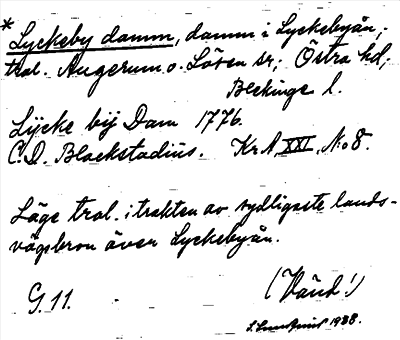 * Lyckeby damm, damm i Lyckebyån,
trol. Augerum o. Lösen sr; Östra hd;
Blekinge l.
Lÿcke bÿ Dam 1776.
C.D. Blackstadius. Kr.A. XXI, No 8.
Läge trol. i trakten av sydligaste lands-
vägsbron över Lyckebyån.
G. 11.
(Vänd!)
1938.